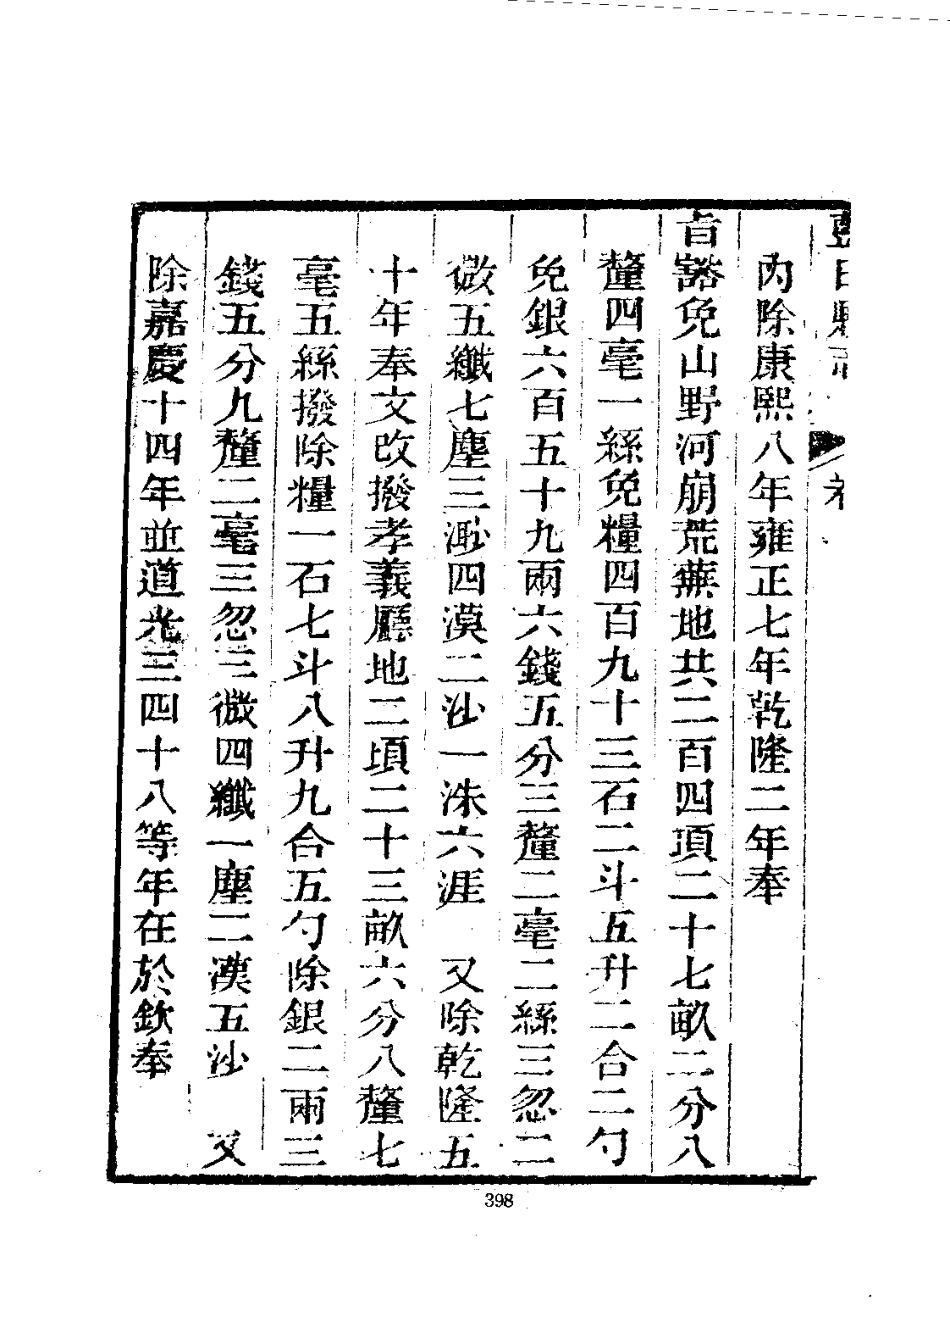 內除康熙八年雍正七年乾隆二年奉
旨豁免山野河崩荒蕪地共二百四項二十七畝二分八
釐四毫一絲免糧四百九十三石二斗五升二合二勺
免銀六百五十九兩六錢五分三釐二毫二絲三忽二
微五纖七塵三渺四漠二沙一洙六涯　又除乾隆五
十年奉文改撥孝義廳地二頃二十三畝六分八釐七
毫五絲撥除糧一石七斗八升九合五勺除銀二兩三
錢五分九釐二毫三忽三微四纖一塵二漠五沙　又
除嘉慶十四年並道光三四十八等年在於欽奉
398